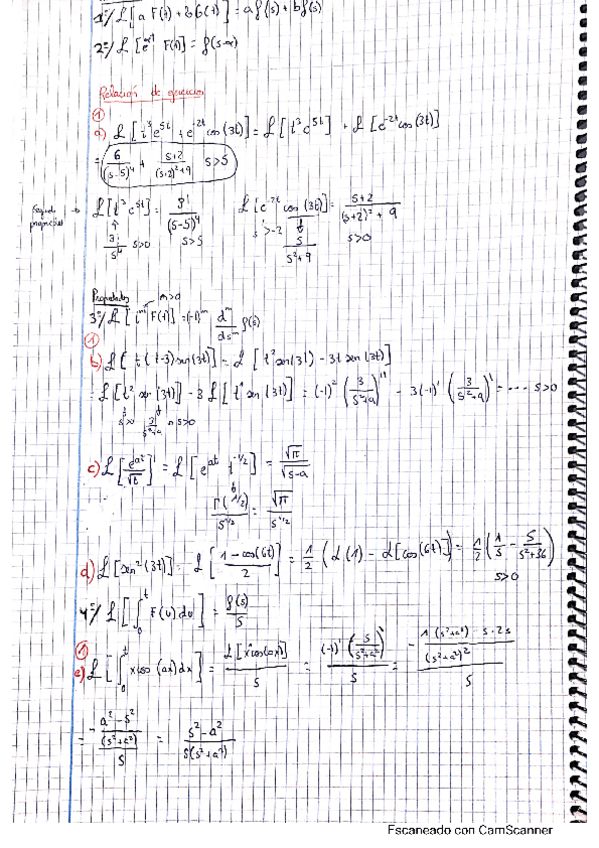 1º/ ℒ[a F(t) + b G(t)] = a f(s) + b g(s)
2º/ ℒ[e^{αt} F(t)] = f(s-α)
Relación de ejercicios
①
a) ℒ[t³e^{5t} + e^{-2t}cos(3t)] = ℒ[t³e^{5t}] + ℒ[e^{-2t}cos(3t)]
= 6/(s-5)⁴ + (s+2)/((s+2)²+9) s>5
Segunda propiedad → ℒ[t³e^{5t}] = 3!/(s-5)⁴ ℒ[e^{-2t}cos(3t)] = (s+2)/((s+2)²+9)
3!/s⁴ s>0 s>5 s>-2 s/(s²+9) s>0
Propiedades n>0
3º/ ℒ[tⁿ F(t)] = (-1)ⁿ dⁿ/dsⁿ f(s)
①
b) ℒ[t(t-3)sen(3t)] = ℒ[t²sen(3t) - 3t sen(3t)]
= ℒ[t² sen(3t)] - 3ℒ[t¹ sen(3t)] = (-1)² (3/(s²+9))'' - 3(-1)¹ (3/(s²+9))' = ---- s>0
3/(s²+9) s>0
c) ℒ[e^{at}/√t] = ℒ[e^{at} t^{-1/2}] = √π/√(s-a)
Γ(1/2)/s^{1/2} = √π/s^{1/2}
d) ℒ[sen²(3t)] = ℒ[(1-cos(6t))/2] = 1/2 (ℒ(1) - ℒ[cos(6t)]) = 1/2 (1/s - s/(s²+36))
s>0
4º/ ℒ[∫₀ᵗ F(u)du] = f(s)/s
①
e) ℒ[∫₀ᵗ x cos(ax)dx] = ℒ[x cos(ax)]/s = (-1)¹ (s/(s²+a²))'/s = -(1·(s²+a²) - s·2s)/(s²+a²)²/s
= -(a²-s²)/(s²+a²)²/s = (s²-a²)/(s(s²+a²)²)
Escaneado con CamScanner